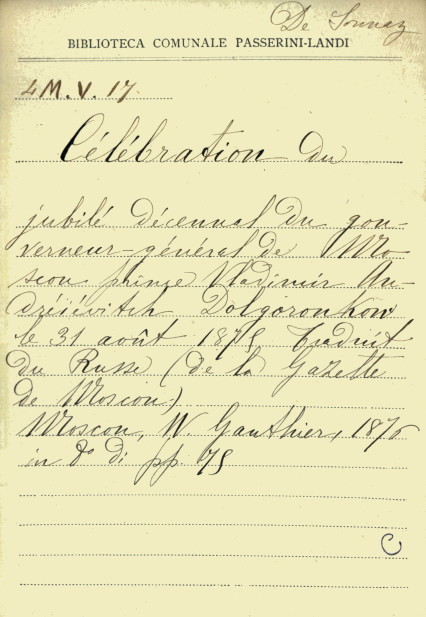 De Sonnaz
BIBLIOTECA COMUNALE PASSERINI-LANDI
4 M. V. 17
Célébration du
jubilé décennal du gou-
verneur-général de Mo
scou prince Vladimir An-
dréiévitch Dolgoroukow
le 31 août 1875 Traduit
du Russe (de la Gazette
de Moscou)
Moscou, W. Gauthier, 1876
in 8° di pp. 75
C